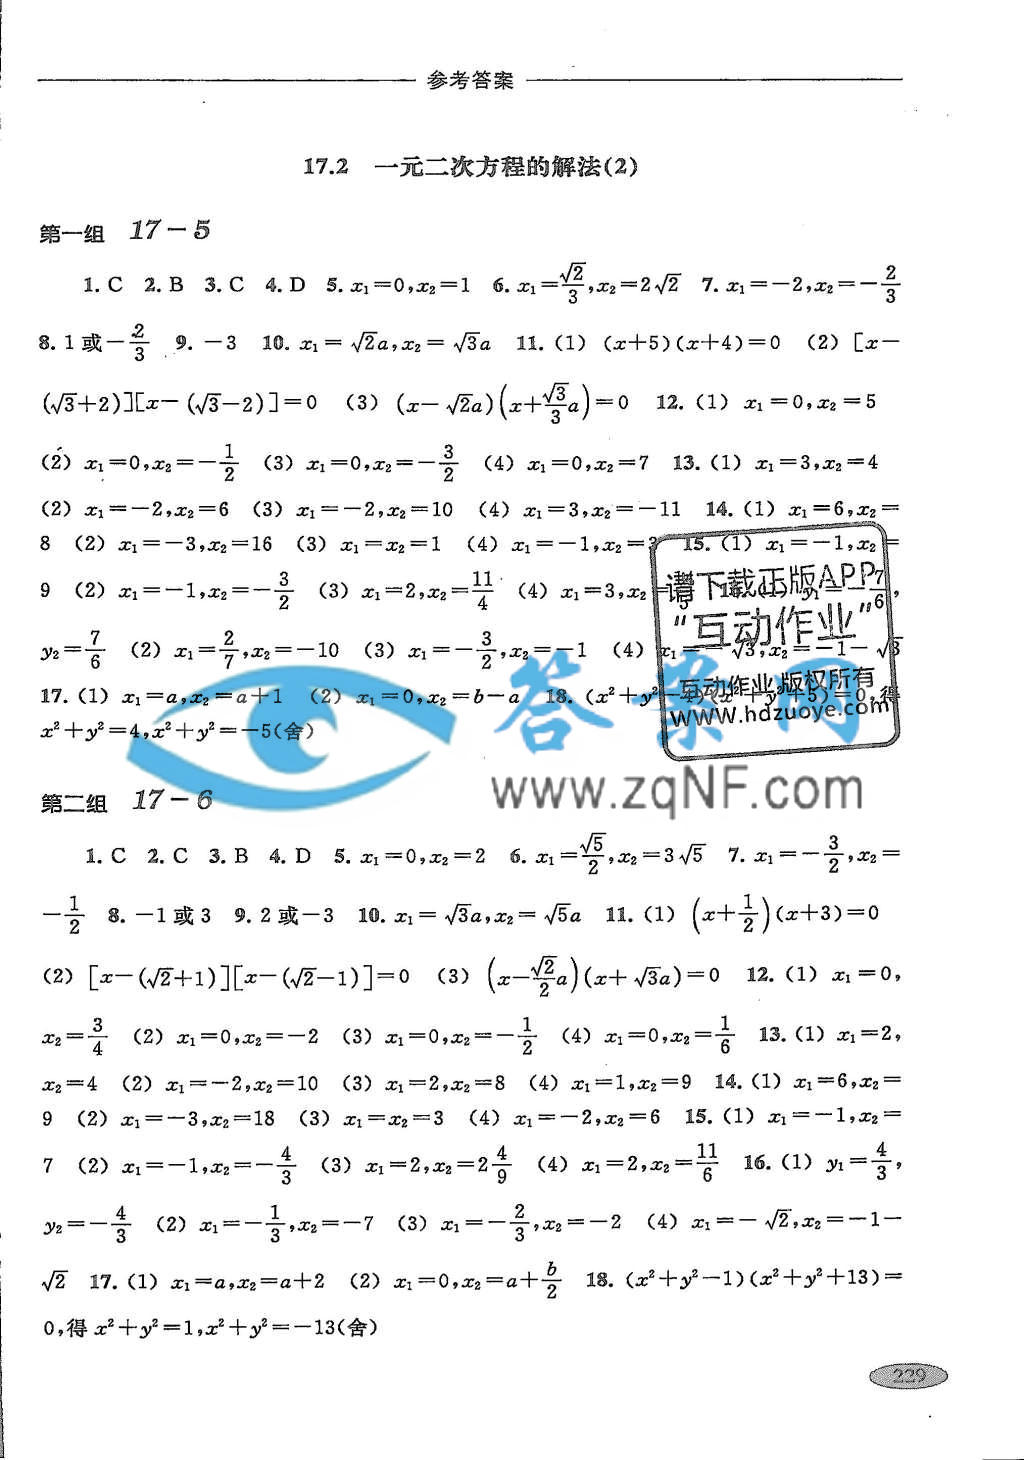 参考答案
17.2 一元二次方程的解法(2)
第一组 17-5
1. C 2. B 3. C 4. D 5. x₁=0,x₂=1 6. x₁=√2/3,x₂=2√2 7. x₁=-2,x₂=-2/3
8. 1或-2/3 9. -3 10. x₁=√2a,x₂=√3a 11. (1) (x+5)(x+4)=0 (2) [x-
(√3+2)][x-(√3-2)]=0 (3) (x-√2a)(x+√3/3a)=0 12. (1) x₁=0,x₂=5
(2) x₁=0,x₂=-1/2 (3) x₁=0,x₂=-3/2 (4) x₁=0,x₂=7 13. (1) x₁=3,x₂=4
(2) x₁=-2,x₂=6 (3) x₁=-2,x₂=10 (4) x₁=3,x₂=-11 14. (1) x₁=6,x₂=
8 (2) x₁=-3,x₂=16 (3) x₁=x₂=1 (4) x₁=-1,x₂=3 15. (1) x₁=-1,x₂=
9 (2) x₁=-1,x₂=-3/2 (3) x₁=2,x₂=11/4 (4) x₁=3,x₂= y₁=-7/6,
y₂=7/6 (2) x₁=2/7,x₂=-10 (3) x₁=-3/2,x₂=-1 (4) x₁=-√3,x₂=-1-√3
17. (1) x₁=a,x₂=a+1 (2) x₁=0,x₂=b-a 18. (x²+y²-4)(x²+y²+5)=0,得
x²+y²=4,x²+y²=-5(舍)
请下载正版APP
“互动作业”
互动作业 版权所有
www.hdzuoye.com
答案网
www.zqNF.com
第二组 17-6
1. C 2. C 3. B 4. D 5. x₁=0,x₂=2 6. x₁=√5/2,x₂=3√5 7. x₁=-3/2,x₂=
-1/2 8. -1或3 9. 2或-3 10. x₁=√3a,x₂=√5a 11. (1) (x+1/2)(x+3)=0
(2) [x-(√2+1)][x-(√2-1)]=0 (3) (x-√2/2a)(x+√3a)=0 12. (1) x₁=0,
x₂=3/4 (2) x₁=0,x₂=-2 (3) x₁=0,x₂=-1/2 (4) x₁=0,x₂=1/6 13. (1) x₁=2,
x₂=4 (2) x₁=-2,x₂=10 (3) x₁=2,x₂=8 (4) x₁=1,x₂=9 14. (1) x₁=6,x₂=
9 (2) x₁=-3,x₂=18 (3) x₁=x₂=3 (4) x₁=-2,x₂=6 15. (1) x₁=-1,x₂=
7 (2) x₁=-1,x₂=-4/3 (3) x₁=2,x₂=2 4/9 (4) x₁=2,x₂=11/6 16. (1) y₁=4/3,
y₂=-4/3 (2) x₁=-1/3,x₂=-7 (3) x₁=-2/3,x₂=-2 (4) x₁=-√2,x₂=-1-
√2 17. (1) x₁=a,x₂=a+2 (2) x₁=0,x₂=a+b/2 18. (x²+y²-1)(x²+y²+13)=
0,得x²+y²=1,x²+y²=-13(舍)
229